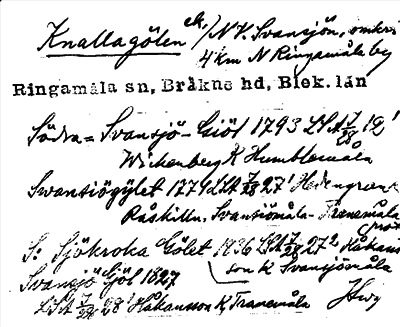 Knallagölen ek, /NV. Svansjön, omkr.
4 km N Ringamåla by
Ringamåla sn, Bräkne hd, Blek. län
Södra = Svansjö - Giöl 1793 LSA 7/28 12'
Wickenberg K Humblemåla
Swansiögylet 1774 LSA 7/28 27' Hedengran
Råskilln. Svansjömåla - Tranemåla
S: Sjökroka Gölet 1736 LSA 7/28 27² Håkans
son K Svansjömåla
Svansjö Giöl 1827
LSA 7/28 28' Håkansson K, Tranemåla Hwg